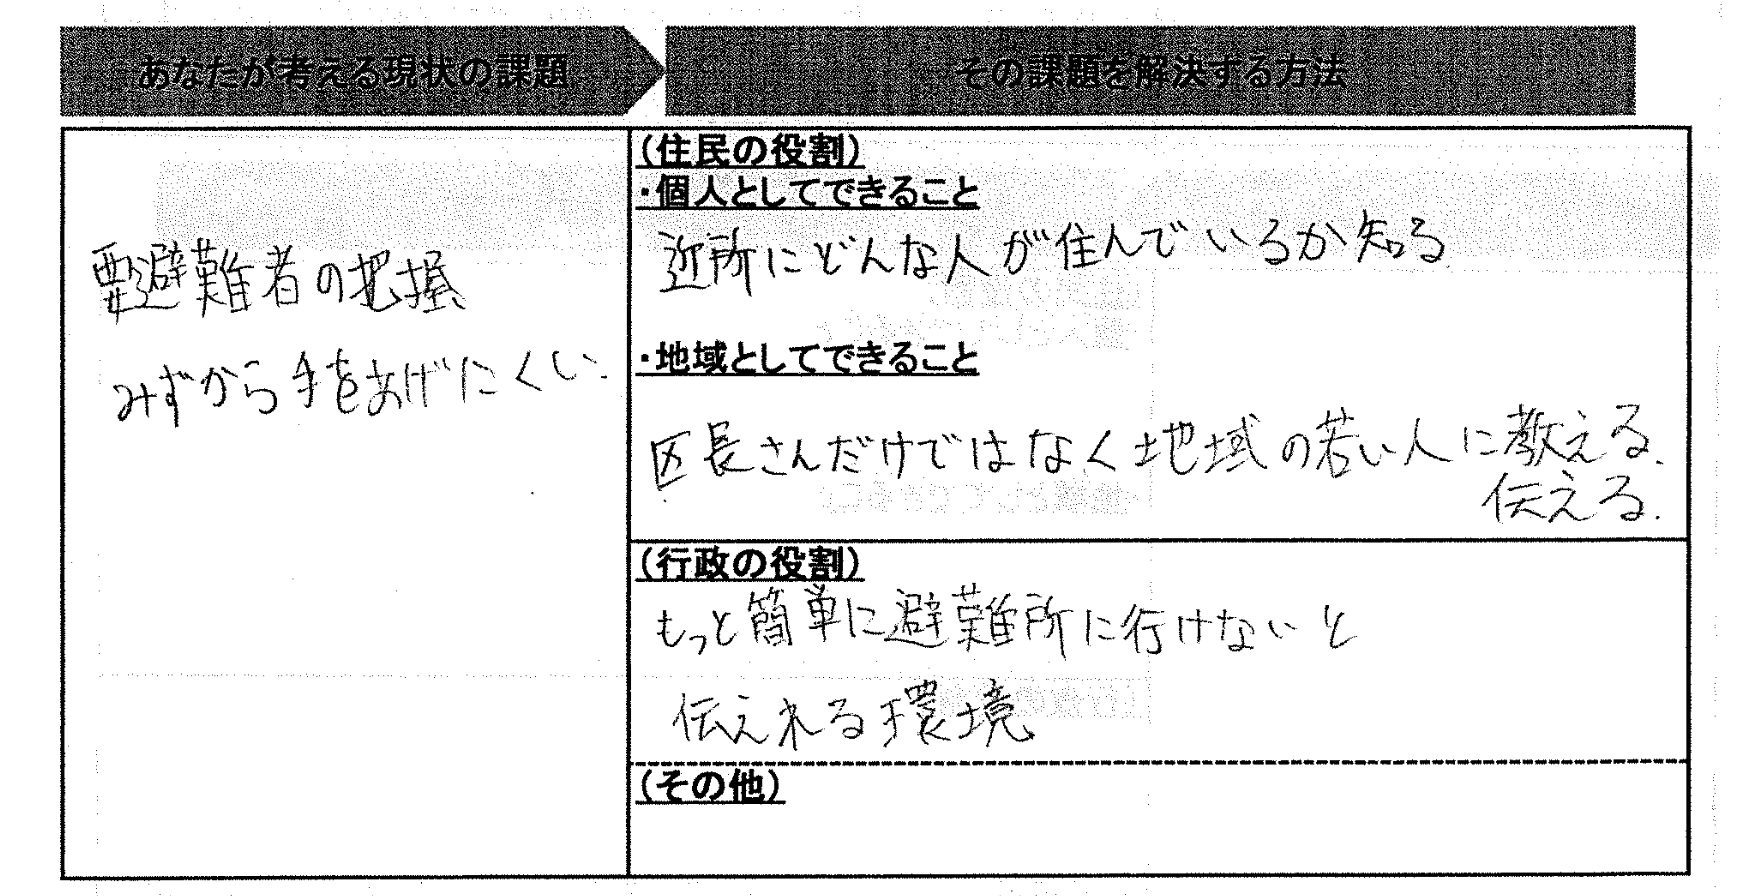 あなたが考える現状の課題
その課題を解決する方法
要避難者の把握
みずから手をあげにくい.
(住民の役割)
・個人としてできること
近所にどんな人が住んでいるか知る
・地域としてできること
区長さんだけではなく地域の若い人に教える.
伝える.
(行政の役割)
もっと簡単に避難所に行けないと
伝えれる環境
(その他)